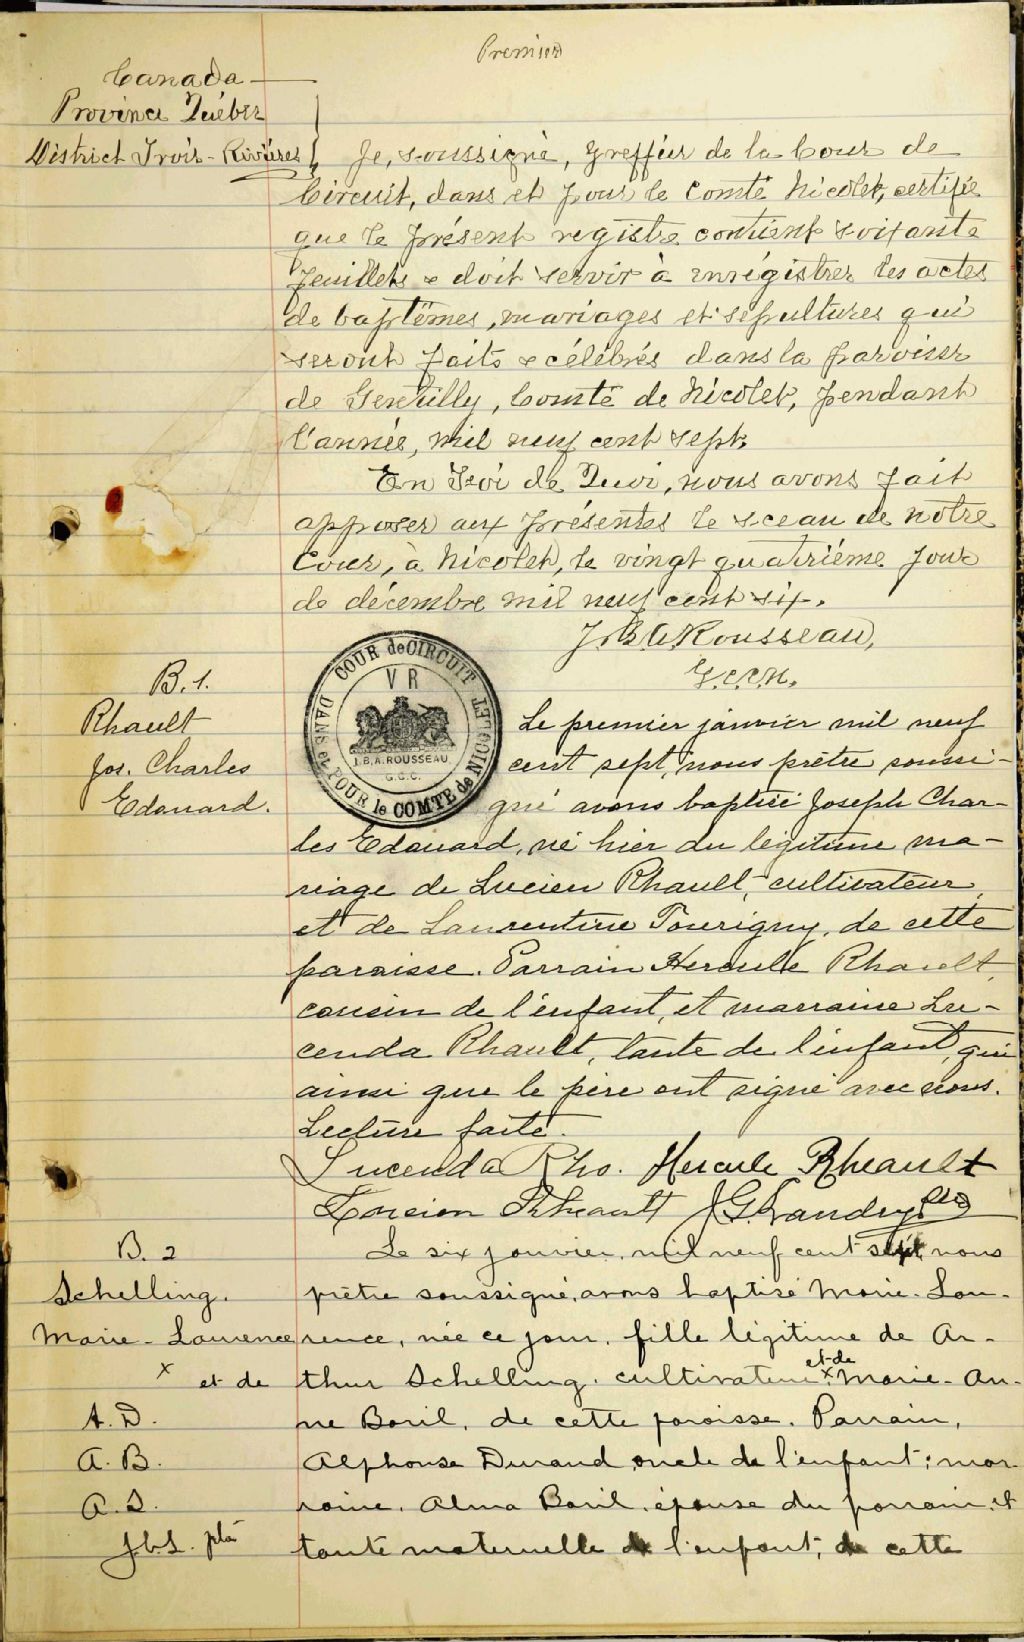 Premier
Canada
Province Québec
District Trois-Rivières
Je, soussigné, greffier de la Cour de
Circuit, dans et pour le Comté Nicolet, certifie
que le présent registre contient soixante
feuillets & doit servir à enrégistrer les actes
de baptêmes, mariages et sépultures qui
seront faits & célébrés dans la paroisse
de Gentilly, Comté de Nicolet, pendant
l'année, mil neuf cent sept.
En Foi de Quoi, nous avons fait
apposer aux présentes le sceau de notre
Cour, à Nicolet, le vingt quatrième jour
de décembre mil neuf cent six.
J.B.A. Rousseau,
G.C.C.N.
COUR de CIRCUIT
DANS et POUR le COMTÉ de NICOLET
V R
J.B.A. ROUSSEAU
G.C.C.
B. 1.
Rhault
Jos. Charles
Edouard.
Le premier janvier mil neuf
cent sept, nous prêtre soussi-
gné avons baptisé Joseph Char-
les Edouard, né hier du légitime ma-
riage de Lucien Rhault, cultivateur,
et de Laurentine Tourigny, de cette
paroisse. Parrain Hercule Rhault,
cousin de l'enfant, et marraine Lu-
cenda Rhault, tante de l'enfant, qui
ainsi que le père ont signé avec nous.
Lecture faite.
Lucenda Rho. Hercule Rheault
Lucien Rheault J.G. Landry, ptre
B. 2
Schelling.
Marie-Laurence
x et de
A. D.
A. B.
A. S.
ptre
Le six janvier, mil neuf cent sept, nous
prêtre soussigné, avons baptisé Marie-Lau-
rence, née ce jour, fille légitime de Ar-
thur Schelling, cultivateur x et de Marie-An-
ne Baril, de cette paroisse. Parrain,
Alphonse Durand oncle de l'enfant; mar-
raine, Alma Baril, épouse du parrain, et
tante maternelle de l'enfant, de cette